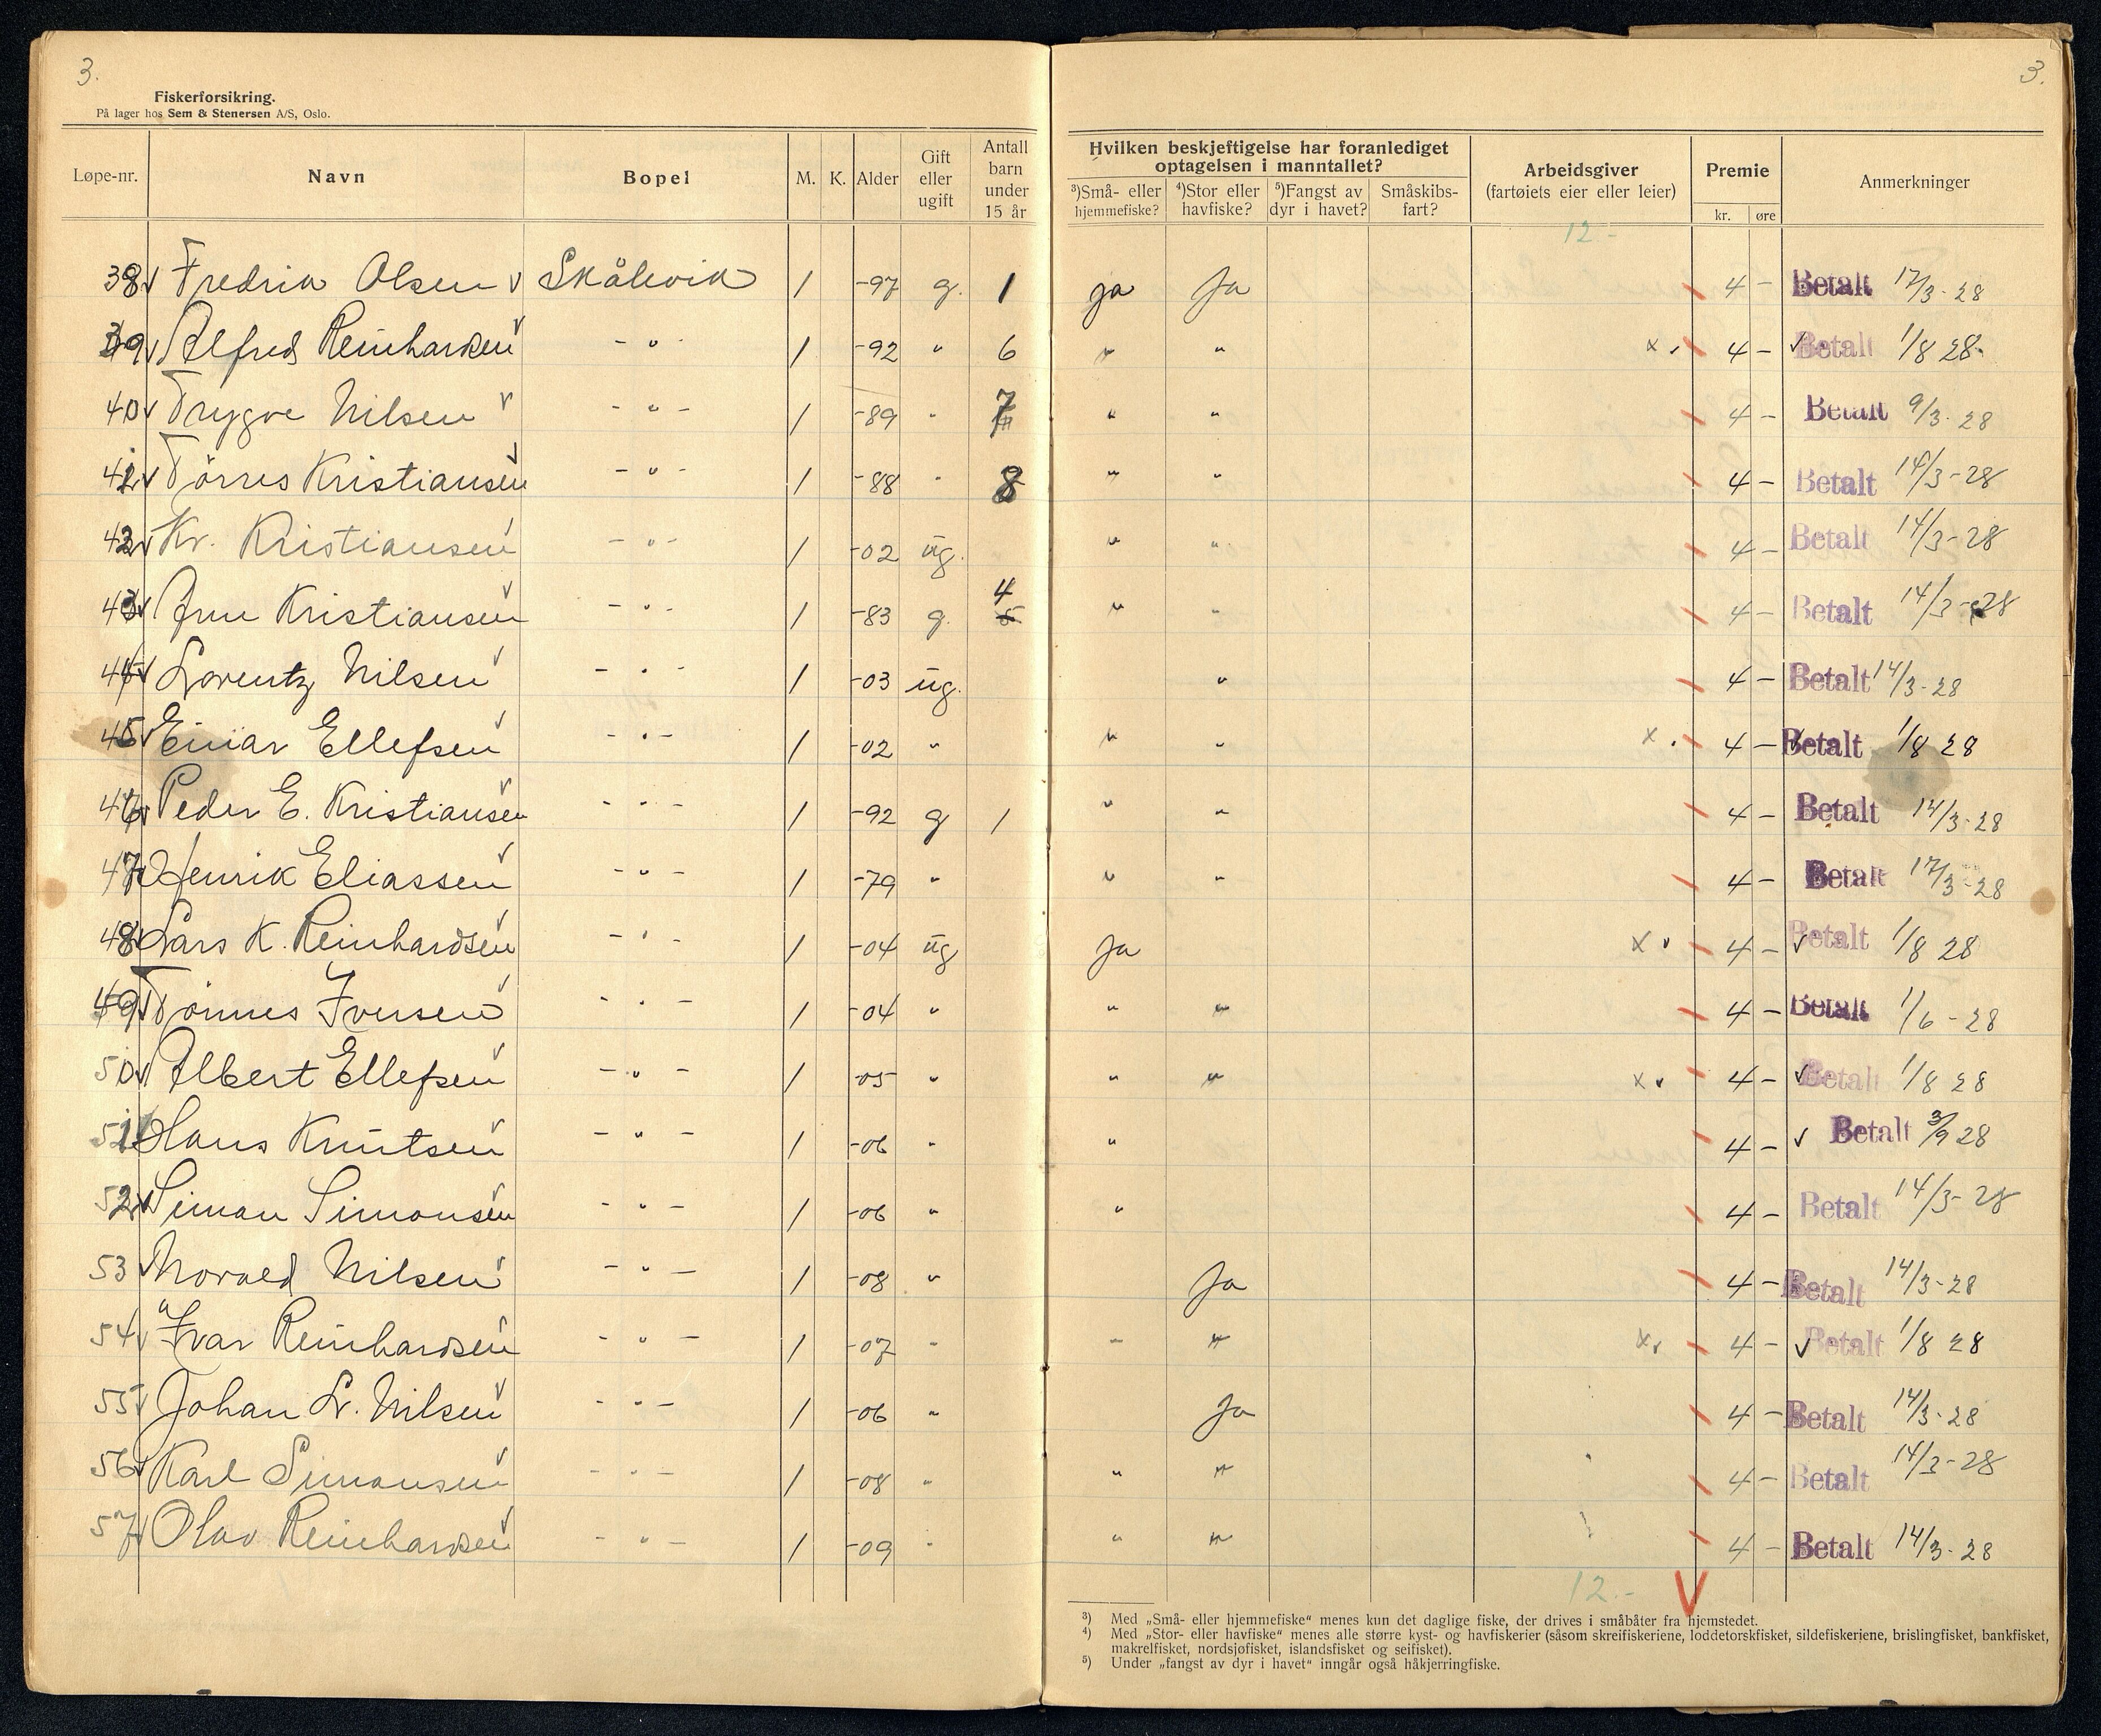 3.
3.
Fiskerforsikring.
På lager hos Sem & Stenersen A/S, Oslo.
Løpe-nr. Navn Bopel M. K. Alder Gift eller ugift Antall barn under 15 år Hvilken beskjeftigelse har foranlediget optagelsen i manntallet? ³)Små- eller hjemmefiske? ⁴)Stor eller havfiske? ⁵)Fangst av dyr i havet? Småskibs-fart? Arbeidsgiver (fartøiets eier eller leier) Premie kr. øre Anmerkninger
12.-
38 v Fredrik Olsen v Skålevik / -97 g. 1 ja ja 4 - Betalt 17/3-28
39 v Alfred Reinhardsen v - " - / -92 " 6 " " x v 4 - v Betalt 1/8 28.
40 v Trygve Nilsen v - " - / -89 " 7 " " 4 - Betalt 9/3-28
41 v Törres Kristiansen v - " - / -88 " 8 " " 4 - Betalt 14/3-28
42 v Kr. Kristiansen v - " - / -02 ug. " " 4 - Betalt 14/3-28
43 v Arne Kristiansen v - " - / -83 g. 4 5 " " 4 - Betalt 14/3-28
44 v Lorentz Nilsen v - " - / -03 ug. " 4 - Betalt 14/3-28
45 v Einar Ellefsen v - " - / -02 " " " x . 4 - v Betalt 1/8 28
46 v Peder E. Kristiansen v - " - / -92 g 1 " " 4 - Betalt 14/3-28
47 v Henrik Eliassen v - " - / -79 " " " 4 - Betalt 17/3-28
48 v Lars K. Reinhardsen v - " - / -04 ug ja x v 4 - v Betalt 1/8 28
49 v Tönnes Iversen v - " - / -04 " " " 4 - Betalt 1/6-28
50 v Albert Ellefsen v - " - / -05 " " " x v 4 - v Betalt 1/8 28
51 v Hans Knutsen v - " - / -06 " " 4 - v Betalt 3/9 28
52 v Simon Simonsen v - " - / -06 " " 4 - Betalt 14/3-28
53 v Norald Nilsen v - " - / -08 " ja 4 - Betalt 14/3-28
54 v Ivar Reinhardsen v - " - / -07 " " " x v 4 - v Betalt 1/8 28
55 v Johan Lr. Nilsen v - " - / -06 " ja 4 - Betalt 14/3-28
56 v Karl Simonsen v - " - / -08 " " " 4 - Betalt 14/3-28
57 v Olav Reinhardsen v - " - / -09 " " " 4 - Betalt 14/3-28
12.-
³) Med „Små- eller hjemmefiske“ menes kun det daglige fiske, der drives i småbåter fra hjemstedet.
⁴) Med „Stor- eller havfiske“ menes alle større kyst- og havfiskerier (såsom skreifiskeriene, loddetorskfisket, sildefiskeriene, brislingfisket, bankfisket,
makrelfisket, nordsjøfisket, islandsfisket og seifisket).
⁵) Under „fangst av dyr i havet“ inngår også håkjerringfiske.